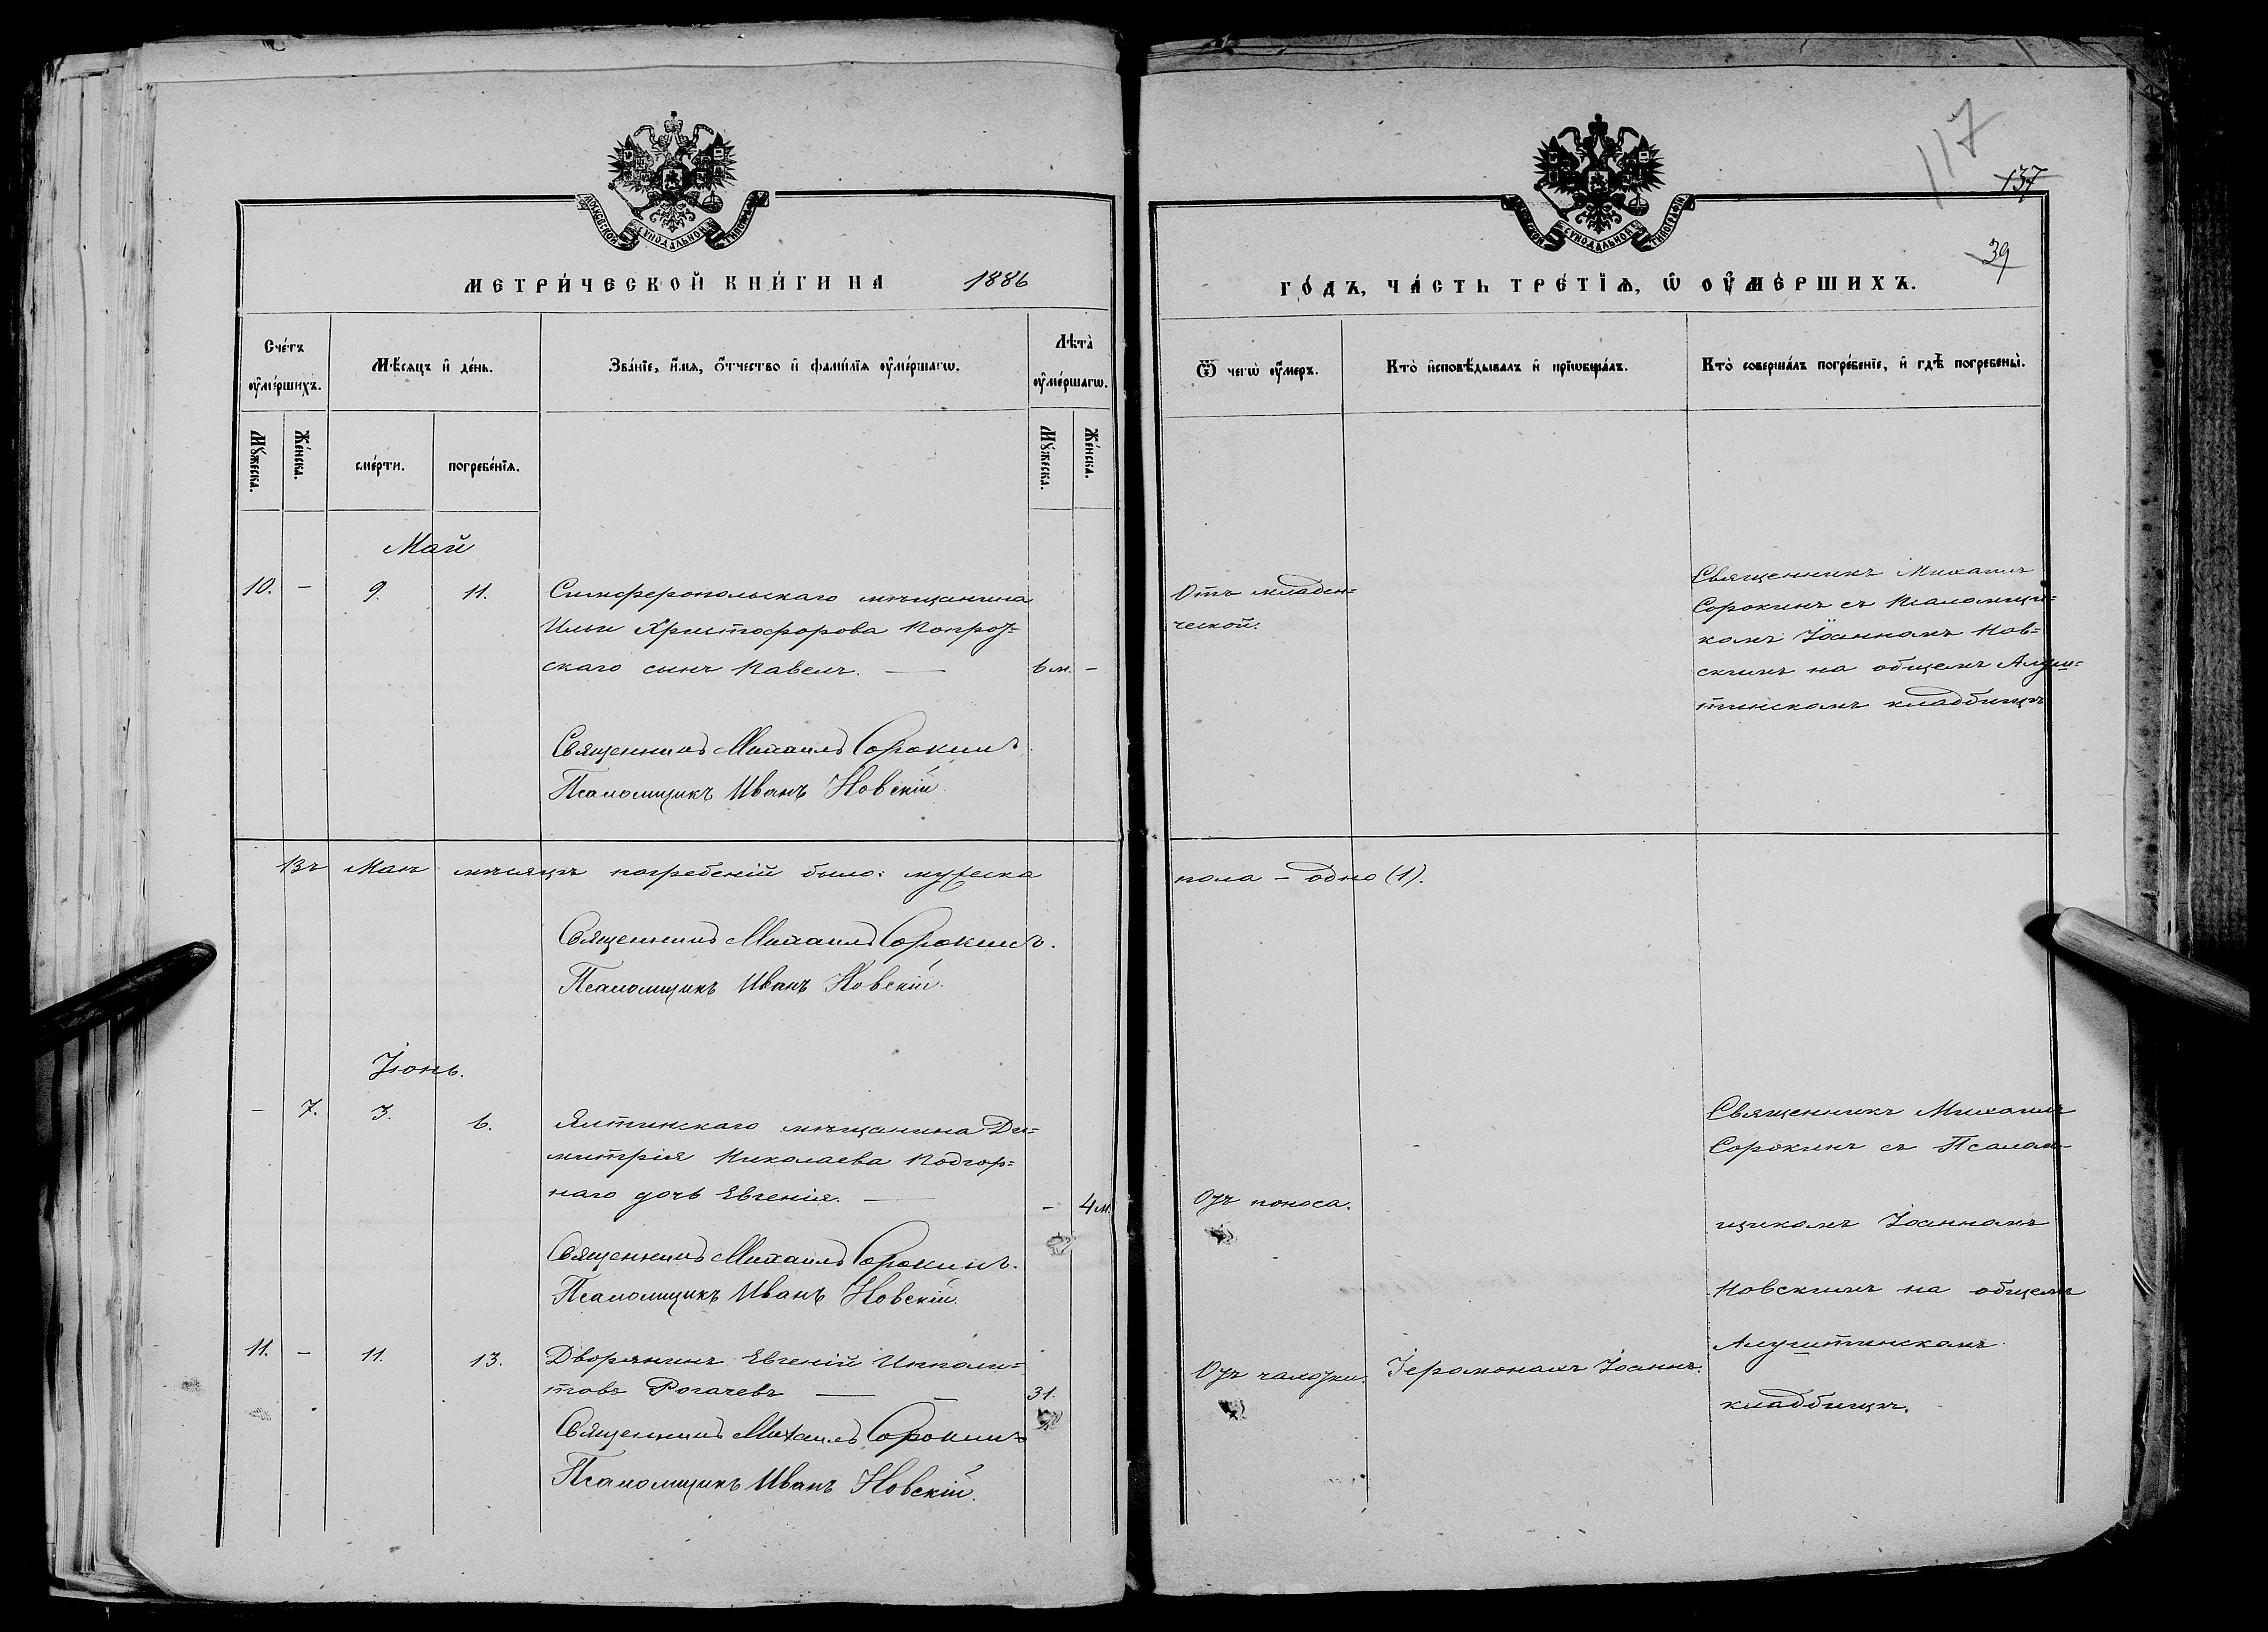 МОСКОВСКОЙ СѴНОДАЛЬНОЙ ТИПОГРАФІИ
МЕТРИ́ЧЕСКОЙ КНИ́ГИ НА 1886
Сче́тъ оу҆ме́ршихъ.
Мѣ́сяцъ и҆ де́нь.
Зва́нїе, и҆́мя, ѻ҆́тчество и҆ фамилїя оу҆ме́ршагѡ.
Лѣта̀ оу҆ме́ршагѡ.
Мꙋ́жеска.
Же́нска.
сме́рти.
погребе́нїя.
Мꙋ́жеска.
Же́нска.
Май
10. – 9. 11. Симферопольскаго мѣщанина
Ильи Христофорова
скаго сынъ Павелъ. — 6 м. –
Священникъ Михаилъ Сорокинъ
Псаломщикъ Иванъ Новскій.
Въ Маѣ мѣсяцѣ погребеній было: мужеска
Священникъ Михаилъ Сорокинъ.
Псаломщикъ Иванъ Новскій.
Іюнь.
– 7. 3. 6. Ялтинскаго мѣщанина Ди=
митрія Николаева Подгор=
наго дочь Евгенія. — – 4 м.
Священникъ Михаилъ Сорокинъ.
Псаломщикъ Иванъ Новскій.
11. – 11. 13. Дворянинъ Евгеній Иппали=
товъ Рогачевъ — – 31.
Священникъ Михаилъ Сорокинъ
Псаломщикъ Иванъ Новскій.
117
137
39
МОСКОВСКОЙ СѴНОДАЛЬНОЙ ТИПОГРАФІИ
ГО́ДЪ, ЧА́СТЬ ТРЕ́ТЇѦ, Ѡ҆ ОУ҆МЕ́РШИХЪ.
Ѿ чегѡ̀ оу҆́меръ.
Кто̀ и҆сповѣ́дывалъ и҆ прїѡбща́лъ.
Кто̀ соверша́лъ погребе́нїе, и҆ гдѣ̀ погребены̀.
Отъ младен=
ческой.
Священникъ Михаилъ
Сорокинъ съ Псаломщи=
комъ Іоанномъ Нов=
скимъ на общемъ Алуш=
тинскомъ кладбищѣ
пола – одно (1).
Отъ поноса.
Священникъ Михаилъ
Сорокинъ съ Псалом=
щикомъ Іоанномъ
Новскимъ на общемъ
Алуштинскомъ
кладбищѣ.
Отъ чахотки. Іеромонахъ Іоаннъ.